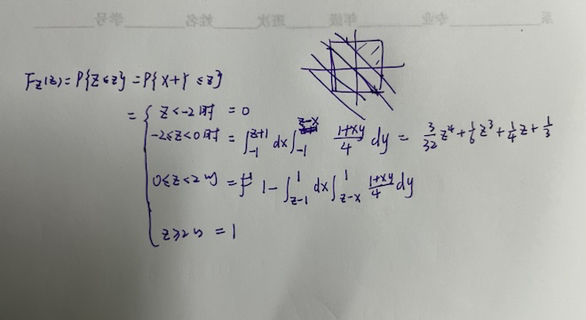 系 专业 年级 班次 姓名 学号
F_Z(z) = P{Z≤z} = P{X+Y≤z}
= { z<-2时 = 0
-2≤z<0时 = ∫_{-1}^{z+1} dx ∫_{-1}^{z-x} \frac{1+xy}{4} dy = \frac{3}{32}z^4 + \frac{1}{6}z^3 + \frac{1}{4}z + \frac{1}{3}
0≤z<2时 = 1 - ∫_{z-1}^{1} dx ∫_{z-x}^{1} \frac{1+xy}{4} dy
z≥2时 = 1